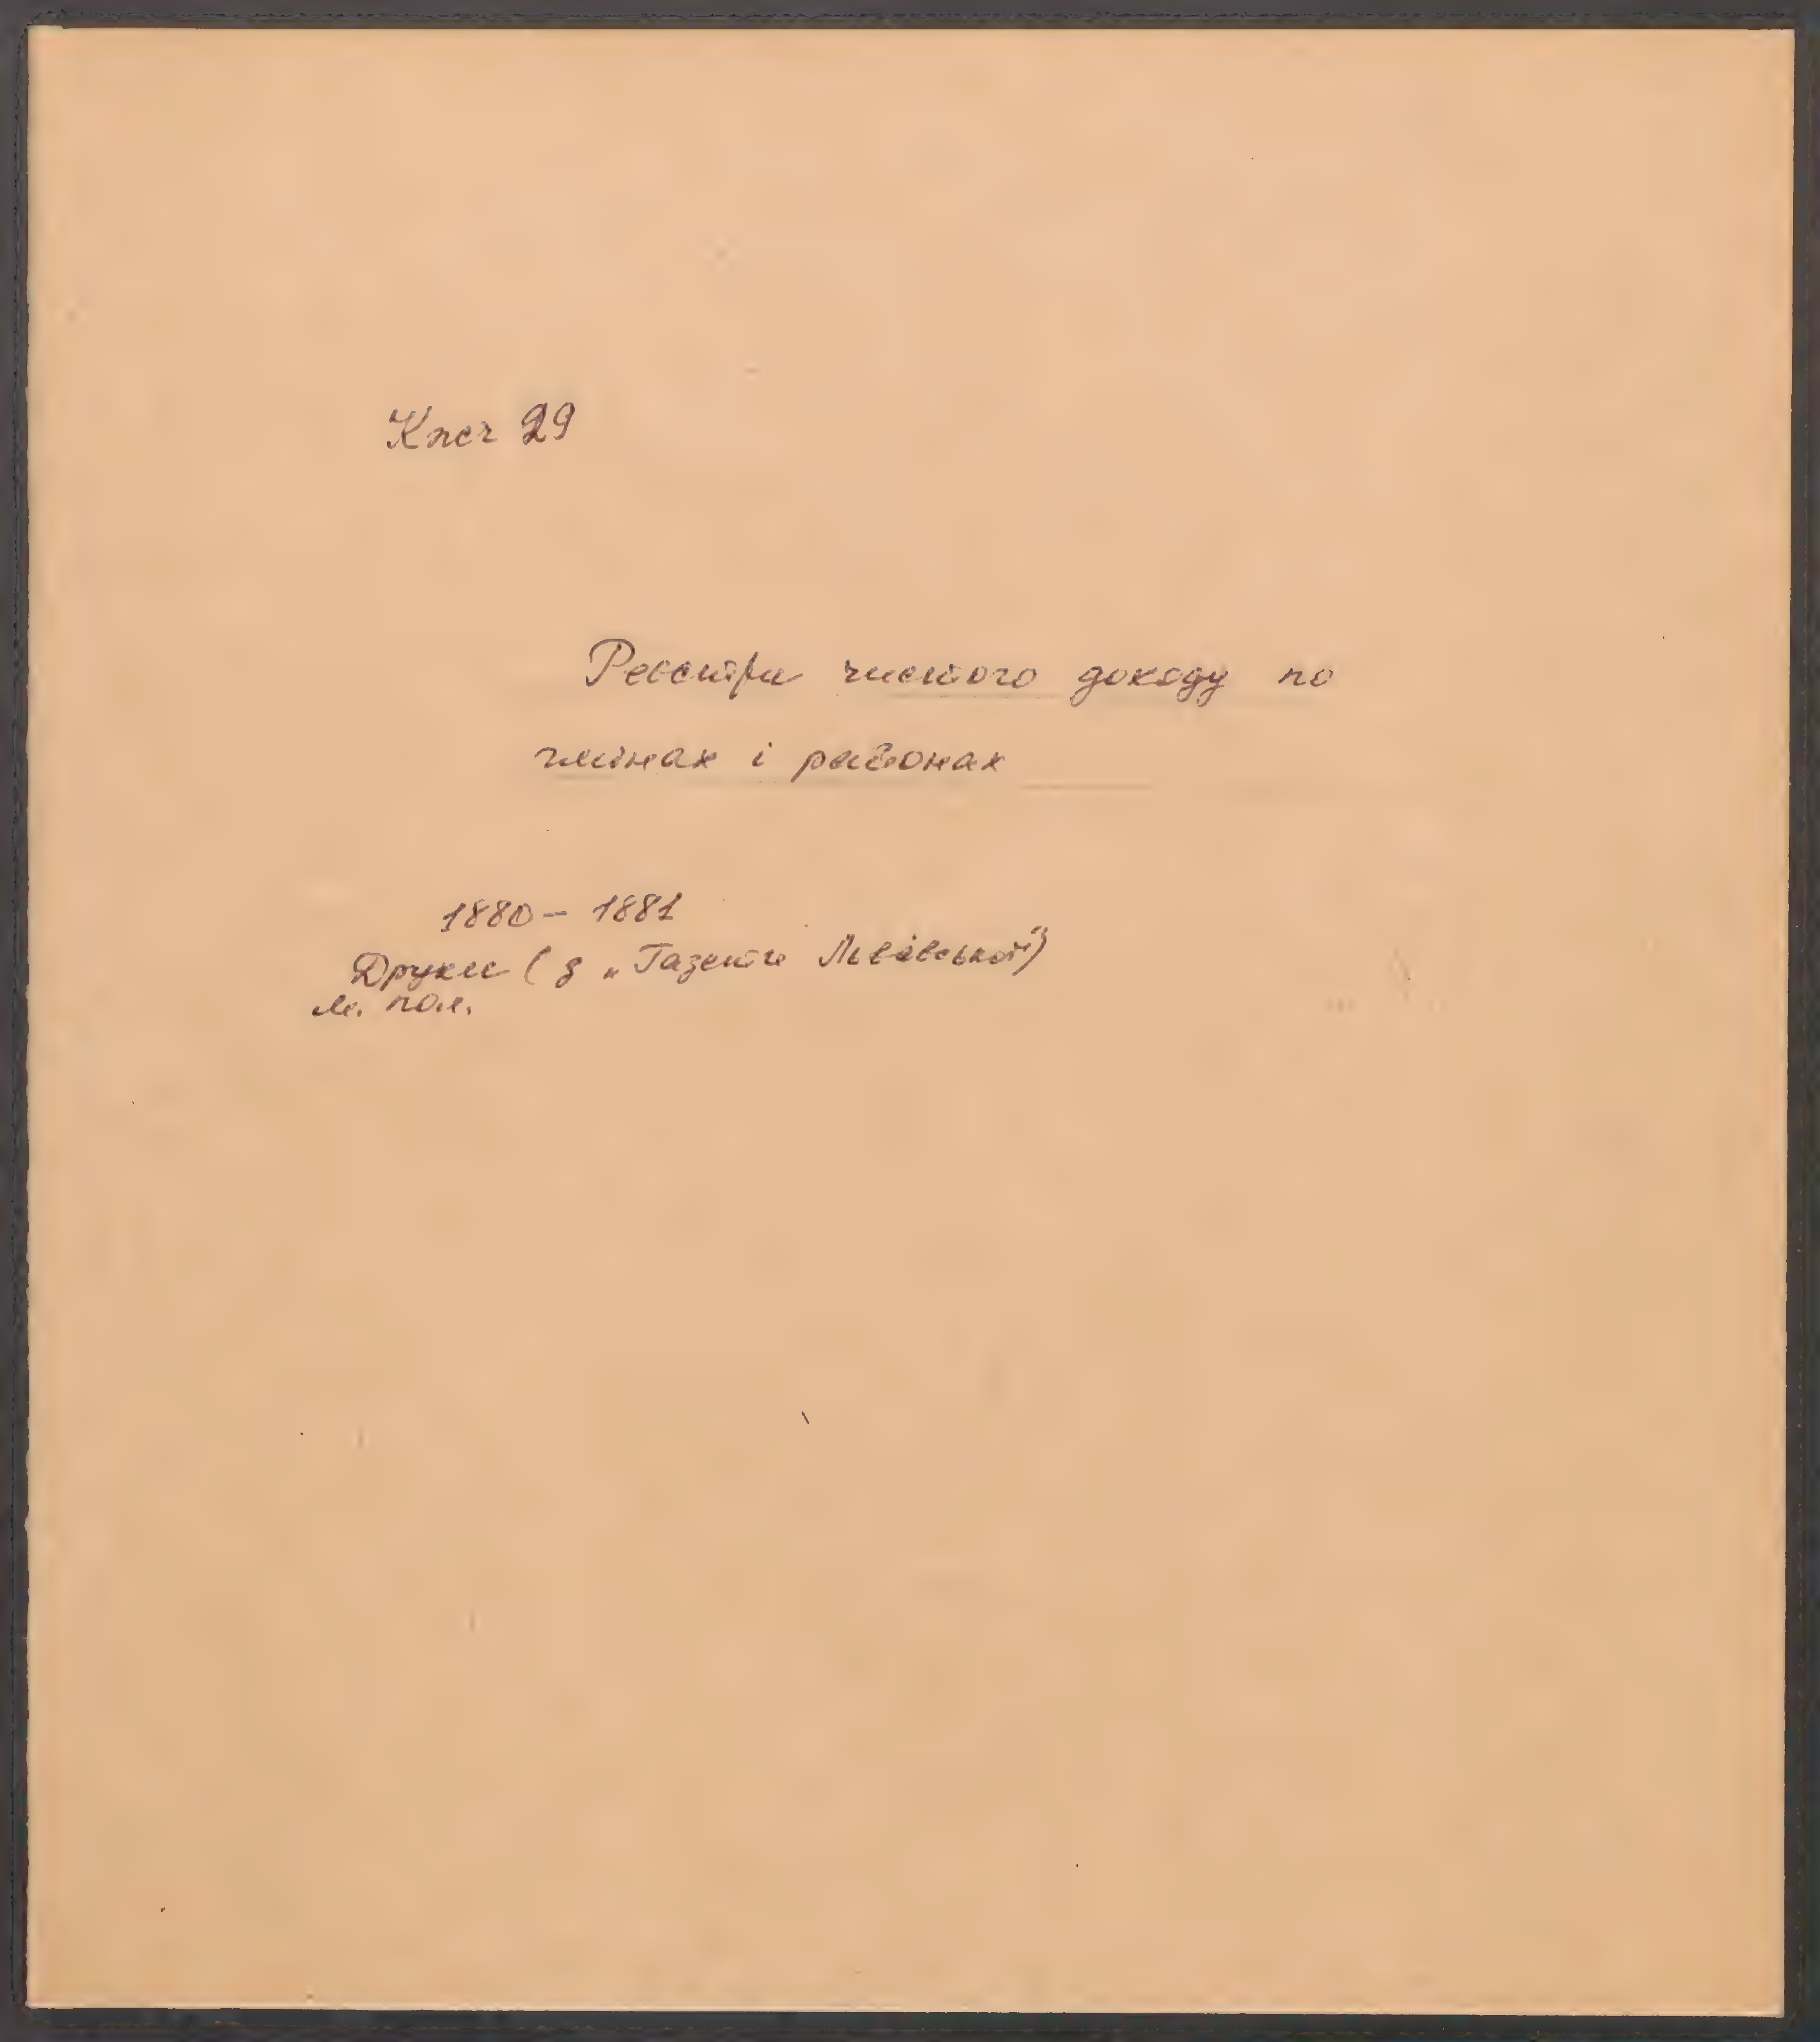 Кнєг 29
Реєстри чистого доходу по
гмінах і районах
1880 – 1881
Друк (з „Газети Львівської")
м. пол.